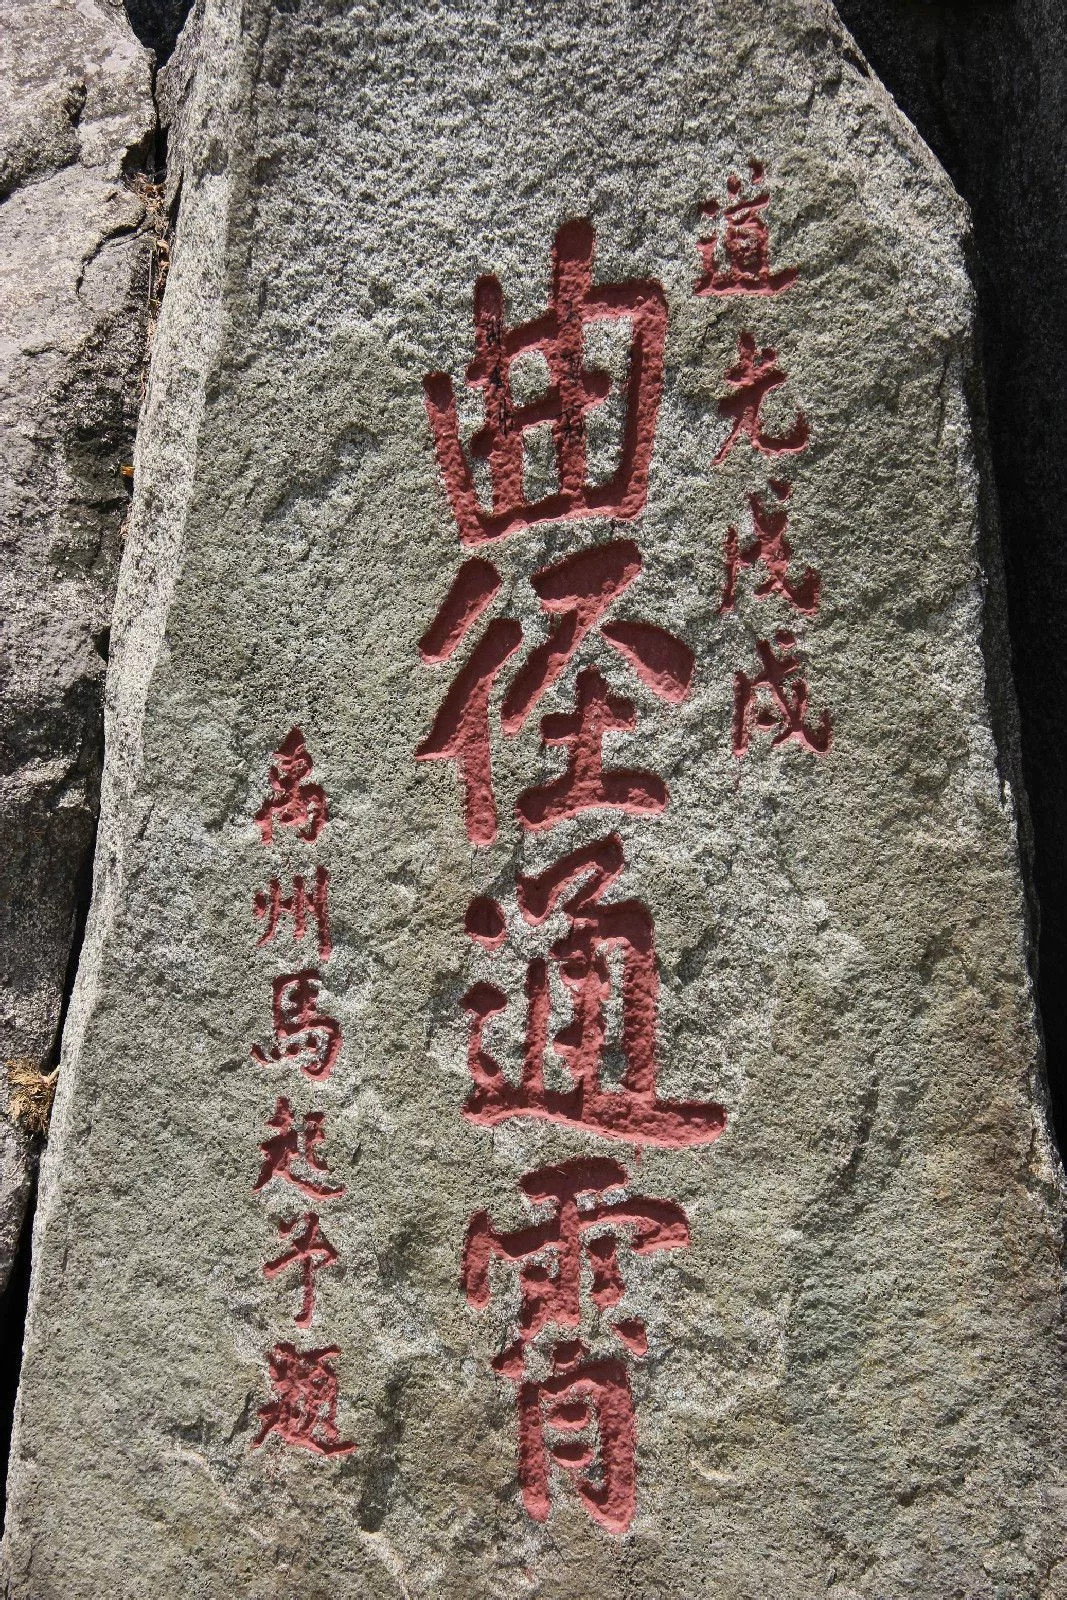 道光戊戌
曲径通霄
禹州馬起午題